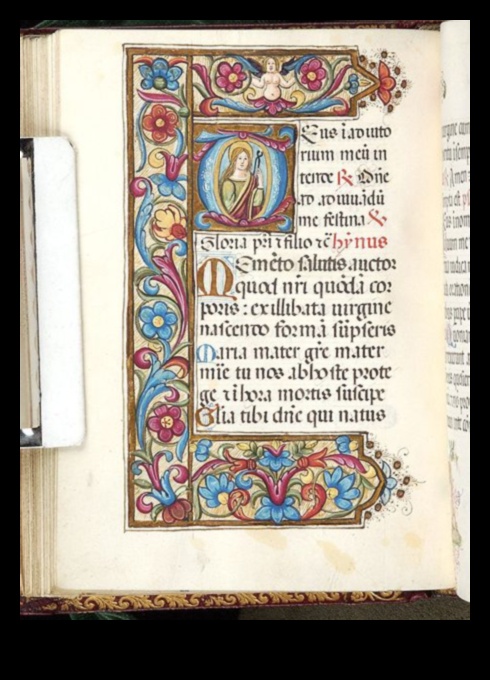 Deus ĩ adiuto
rium meũ in
tende ℟ Dñe
ad adiuuãdũ
me festina ℣
Gloria pñ ⁊ filio ⁊c̃ hỹnus
Memẽto salutis auctor
quod nr̃i quõdã cor
poris : ex illibata uirgine
nascendo formã sũpseris
Maria mater gr̃e mater
mĩe tu nos ab hoste prote
ge ⁊ ĩ hora mortis suscipe
Glia tibi dñe qui natus